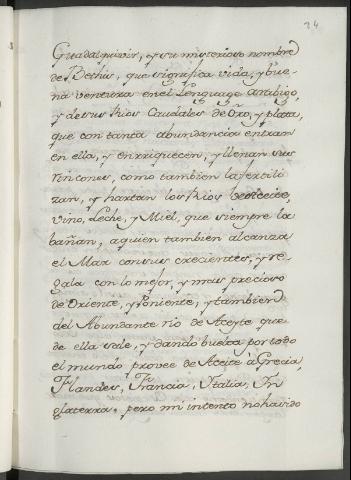 24
Guadalquivir, y su misterioso nombre
de Bethis, que significa vida, y bue-
na ventura en el Lenguage arabigo,
y de sus Rios Caudales de Oro, y plata,
que con tanta abundancia entran
en ella, y enrriquecen, y llenan sus
rincones, como tambien la fertili
zan, y hartan los Rios de Aceite,
vino, Leche, y Miel, que siempre la
bañan, a quien tambien alcanza
el Mar con sus crecientes, y re
gala con lo mejor, y mas precioso
de Oriente, y Poniente, y tambien
del Abundante rio de Aceyte que
de ella sale, y dando buelta por todo
el mundo provee de Aceite à Grecia,
Flandes, Francia, Italia, In
glaterra, pero mi intento no ha sido